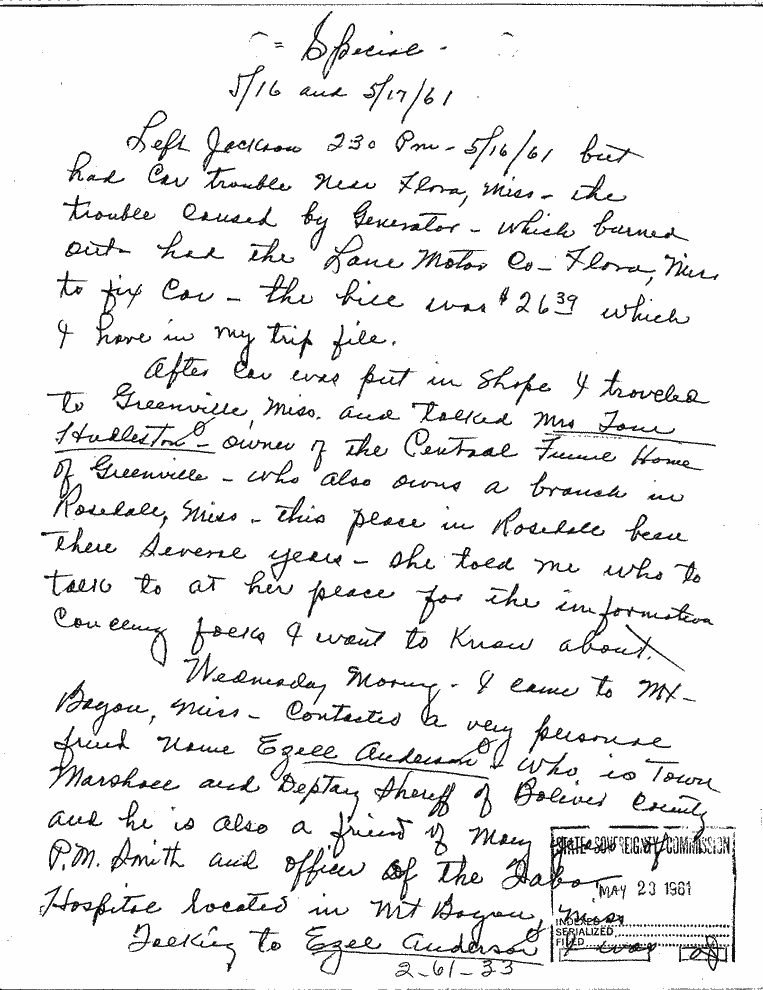 = Special -
5/16 and 5/17/61
Left Jackson 230 Pm - 5/16/61 but
had Car trouble Near Flora, Miss - the
trouble Caused by Generator - which burned
out had the Lane Motor Co - Flora, Miss
to fix Car - the bill was $26 39 which
I have in my trip file.
After Car was put in Shape I traveled
to Greenville, Miss. and talked Mrs
Hudleston - owner of the Central Funeral Home
of Greenville - who also owns a branch in
Rosedale, Miss - this place in Rosedale been
there Several years - she told me who to
talk to at her place for the information
folks I want to Know about.
Wednesday Morning - I came to Mt -
Bayou, Miss - Contacted a very personal
friend Name Ezell Anderson - who is Town
Marshall and Deptay Sheriff of Boliver County
and he is also a friend of Mary
P.M. Smith and officer of the Tabor
Hospital located in Mt Bayou, Miss
Talking to Ezell Anderson I was of
STATE SOVEREIGNTY COMMISSION
MAY 23 1961
INDEXED
SERIALIZED
FILED
2-61-33